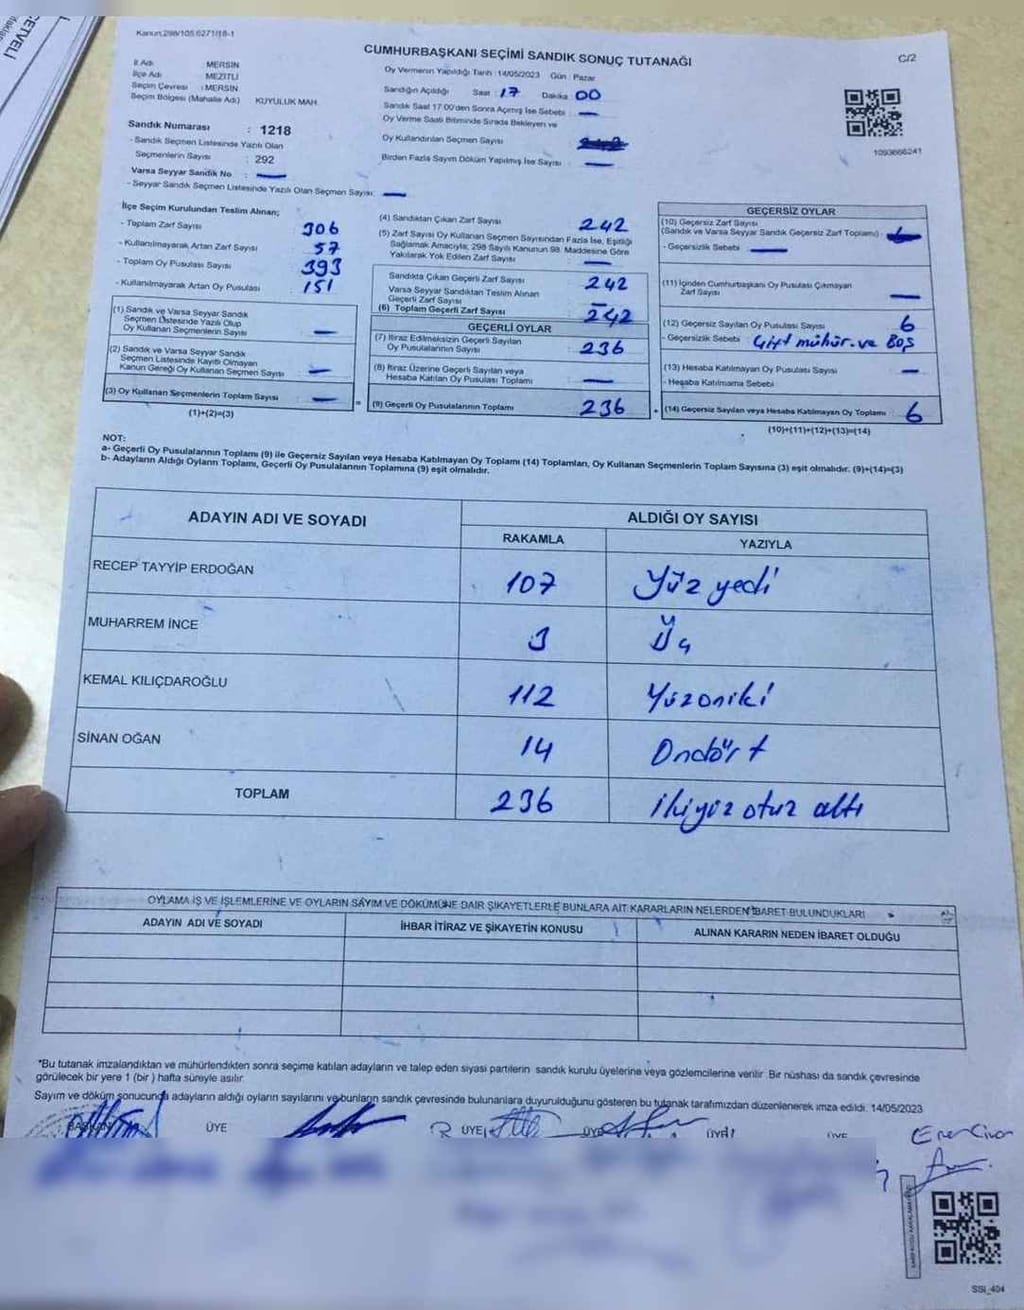 CETVELİ
Kanun:298/105.6271/18-1
CUMHURBAŞKANI SEÇİMİ SANDIK SONUÇ TUTANAĞI
C/2
İl Adı : MERSİN
İlçe Adı : MEZİTLİ
Seçim Çevresi : MERSİN
Seçim Bölgesi (Mahalle Adı) KUYULUK MAH.
Sandık Numarası : 1218
- Sandık Seçmen Listesinde Yazılı Olan
Seçmenlerin Sayısı : 292
Varsa Seyyar Sandık No : —
- Seyyar Sandık Seçmen Listesinde Yazılı Olan Seçmen Sayısı: —
Oy Vermenin Yapıldığı Tarih :14/05/2023 Gün : Pazar
Sandığın Açıldığı Saat : 17 Dakika : 00
Sandık Saat 17.00'den Sonra Açılmış İse Sebebi : —
Oy Verme Saati Bitiminde Sırada Bekleyen ve
Oy Kullandırılan Seçmen Sayısı :
Birden Fazla Sayım Döküm Yapılmış İse Sayısı : —
1093666241
İlçe Seçim Kurulundan Teslim Alınan;
- Toplam Zarf Sayısı : 306
- Kullanılmayarak Artan Zarf Sayısı : 57
- Toplam Oy Pusulası Sayısı : 393
- Kullanılmayarak Artan Oy Pusulası : 151
(1) Sandık ve Varsa Seyyar Sandık
Seçmen Listesinde Yazılı Olup
Oy Kullanan Seçmenlerin Sayısı : —
(2) Sandık ve Varsa Seyyar Sandık
Seçmen Listesinde Kayıtlı Olmayan
Kanun Gereği Oy Kullanan Seçmen Sayısı : —
(3) Oy Kullanan Seçmenlerin Toplam Sayısı : —
(1)+(2)=(3)
(4) Sandıktan Çıkan Zarf Sayısı : 242
(5) Zarf Sayısı Oy Kullanan Seçmen Sayısından Fazla İse, Eşitliği
Sağlamak Amacıyla; 298 Sayılı Kanunun 98. Maddesine Göre
Yakılarak Yok Edilen Zarf Sayısı : —
Sandıkta Çıkan Geçerli Zarf Sayısı : 242
Varsa Seyyar Sandıktan Teslim Alınan
Geçerli Zarf Sayısı : —
(6) Toplam Geçerli Zarf Sayısı : 242
GEÇERLİ OYLAR
(7) İtiraz Edilmeksizin Geçerli Sayılan
Oy Pusulalarının Sayısı : 236
(8) İtiraz Üzerine Geçerli Sayılan veya
Hesaba Katılan Oy Pusulası Toplamı : —
(9) Geçerli Oy Pusulalarının Toplamı : 236
GEÇERSİZ OYLAR
(10) Geçersiz Zarf Sayısı
(Sandık ve Varsa Seyyar Sandık Geçersiz Zarf Toplamı) :
- Geçersizlik Sebebi : —
(11) İçinden Cumhurbaşkanı Oy Pusulası Çıkmayan
Zarf Sayısı : —
(12) Geçersiz Sayılan Oy Pusulası Sayısı : 6
- Geçersizlik Sebebi : Çift mühür.ve Boş
(13) Hesaba Katılmayan Oy Pusulası Sayısı : —
- Hesaba Katılmama Sebebi
(14) Geçersiz Sayılan veya Hesaba Katılmayan Oy Toplamı : 6
(10)+(11)+(12)+(13)=(14)
NOT:
a- Geçerli Oy Pusulalarının Toplamı (9) ile Geçersiz Sayılan veya Hesaba Katılmayan Oy Toplamı (14) Toplamları, Oy Kullanan Seçmenlerin Toplam Sayısına (3) eşit olmalıdır. (9)+(14)=(3)
b- Adayların Aldığı Oyların Toplamı, Geçerli Oy Pusulalarının Toplamına (9) eşit olmalıdır.
ADAYIN ADI VE SOYADI ALDIĞI OY SAYISI
RAKAMLA YAZIYLA
RECEP TAYYİP ERDOĞAN 107 Yüz yedi
MUHARREM İNCE 3 Üç
KEMAL KILIÇDAROĞLU 112 Yüzoniki
SİNAN OĞAN 14 Ondört
TOPLAM 236 ikiyüz otuz altı
OYLAMA İŞ VE İŞLEMLERİNE VE OYLARIN SAYIM VE DÖKÜMÜNE DAİR ŞİKAYETLERLE BUNLARA AİT KARARLARIN NELERDEN İBARET BULUNDUKLARI
ADAYIN ADI VE SOYADI İHBAR İTİRAZ VE ŞİKAYETİN KONUSU ALINAN KARARIN NEDEN İBARET OLDUĞU
*Bu tutanak imzalandıktan ve mühürlendikten sonra seçime katılan adayların ve talep eden siyasi partilerin sandık kurulu üyelerine veya gözlemcilerine verilir. Bir nüshası da sandık çevresinde
görülecek bir yere 1 (bir ) hafta süreyle asılır.
Sayım ve döküm sonucunda adayların aldığı oyların sayılarını ve bunların sandık çevresinde bulunanlara duyurulduğunu gösteren bu tutanak tarafımızdan düzenlenerek imza edildi. 14/05/2023
BAŞKAN ÜYE ÜYE ÜYE ÜYE ÜYE
SSI_404